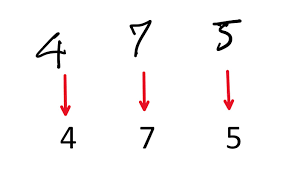 4 7 5
4 7 5